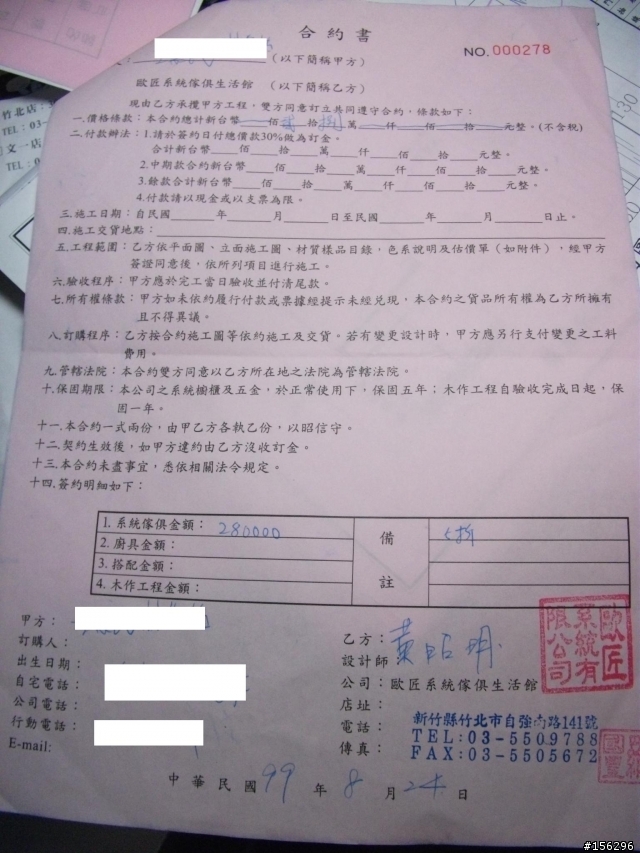 合約書
NO. 000278
(以下簡稱甲方)
歐匠系統傢俱生活館 (以下簡稱乙方)
現由乙方承攬甲方工程,雙方同意訂立共同遵守合約,條款如下:
一.價格條款:本合約總計新台幣 佰貳拾捌萬 仟 佰 拾 元整。(不含稅)
二.付款辦法:1.請於簽約日付總價款30%做為訂金。
合計新台幣 佰 拾 萬 仟 佰 拾 元整。
2.中期款合約新台幣 佰 拾 萬 仟 佰 拾 元整。
3.餘款合計新台幣 佰 拾 萬 仟 佰 拾 元整。
4.付款請以現金或以支票為限。
三.施工日期:自民國 年 月 日至民國 年 月 日止。
四.施工交貨地點:
五.工程範圍:乙方依平面圖、立面施工圖、材質樣品目錄,色系說明及估價單(如附件),經甲方
簽證同意後,依所列項目進行施工。
六.驗收程序:甲方應於完工當日驗收並付清尾款。
七.所有權條款:甲方如未依約履行付款或票據經提示未經兌現,本合約之貨品所有權為乙方所擁有
且不得異議。
八.訂購程序:乙方按合約施工圖等依約施工及交貨。若有變更設計時,甲方應另行支付變更之工料
費用。
九.管轄法院:本合約雙方同意以乙方所在地之法院為管轄法院。
十.保固期限:本公司之系統櫥櫃及五金,於正常使用下,保固五年;木作工程自驗收完成日起,保
固一年。
十一.本合約一式兩份,由甲乙方各執乙份,以昭信守。
十二.契約生效後,如甲方違約由乙方沒收訂金。
十三.本合約未盡事宜,悉依相關法令規定。
十四.簽約明細如下:
1. 系統傢俱金額: 280000
2. 廚具金額:
3. 搭配金額:
4. 木作工程金額:
備
註
5折
甲方:
訂購人:
出生日期:
自宅電話:
公司電話:
行動電話:
E-mail:
乙方:
設計師: 黃昭明
公司:歐匠系統傢俱生活館
店址:
電話:
傳真:
新竹縣竹北市自強南路141號
TEL:03-5509788
FAX:03-5505672
歐匠
系統有
限公司
中華民國 99 年 8 月 24 日
竹北店:
TEL:03-
文一店
TEL:
#156296